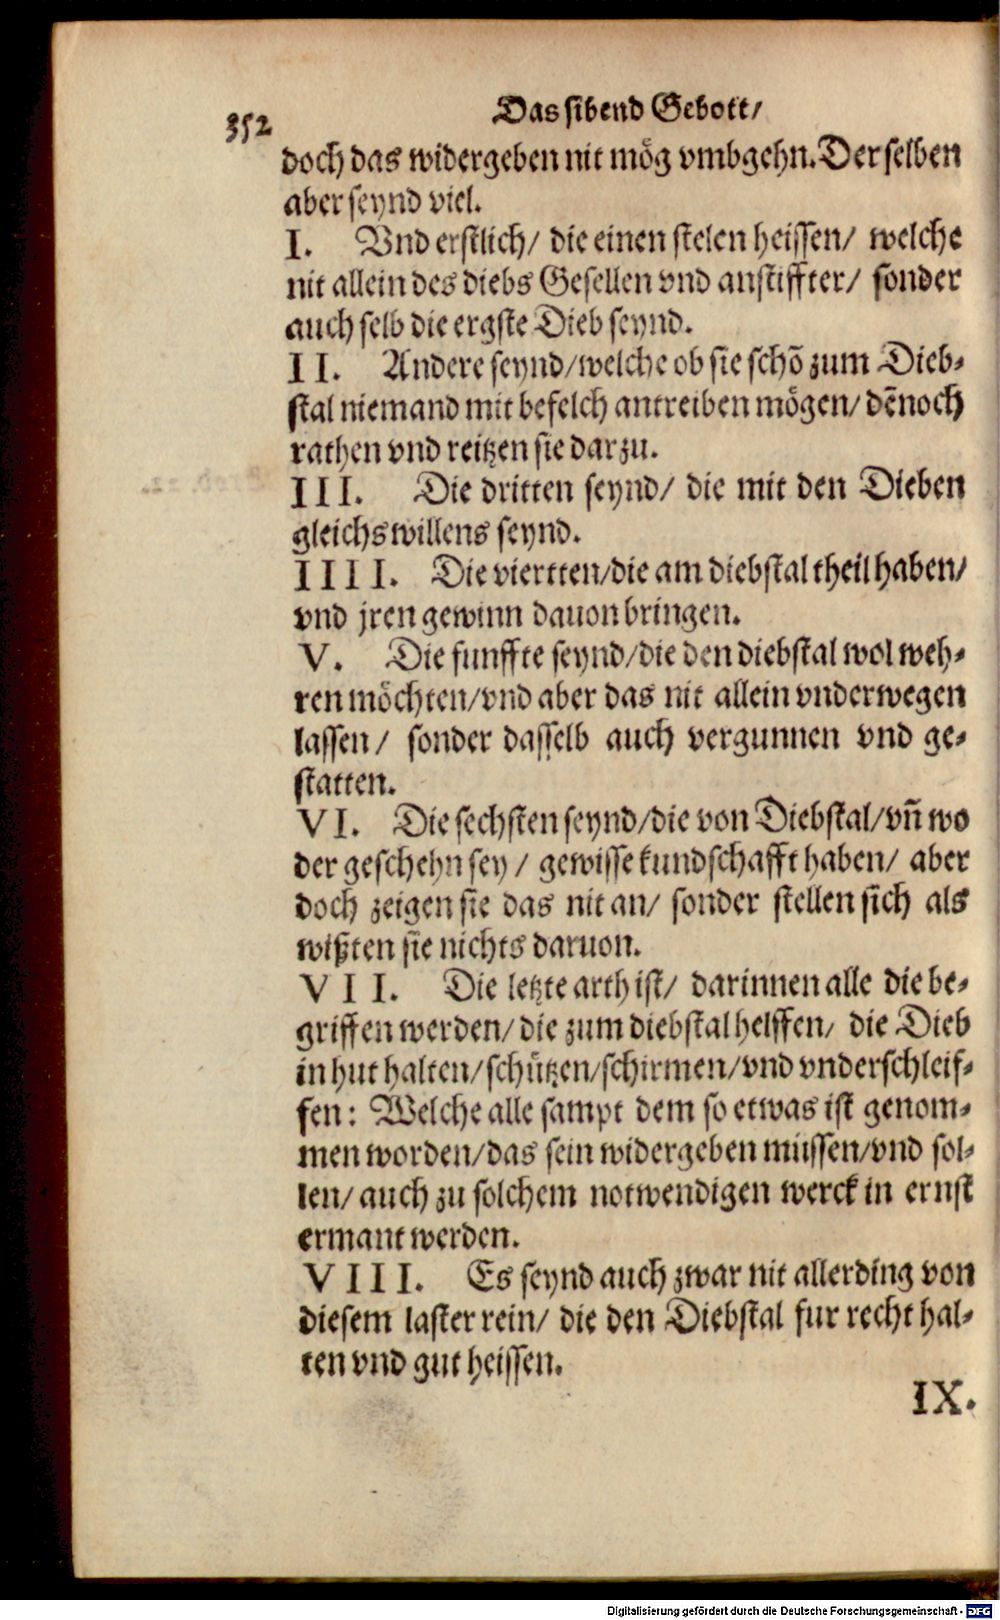 352
Das sibend Gebott/
doch das widergeben nit mög vmbgehn. Derselben
aber seynd viel.
I. Vnd erstlich/ die einen stelen heissen/ welche
nit allein des diebs Gesellen vnd anstiffter/ sonder
auch selb die ergste Dieb seynd.
II. Andere seynd/welche ob sie schõ zum Dieb-
stal niemand mit befelch antreiben mögen/ dẽnoch
rathen vnd reitzen sie darzu.
III. Die dritten seynd/ die mit den Dieben
gleichs willens seynd.
IIII. Die viertten/die am diebstal theil haben/
vnd jren gewinn dauon bringen.
V. Die funffte seynd/die den diebstal wol weh-
ren möchten/vnd aber das nit allein vnderwegen
lassen/ sonder dasselb auch vergunnen vnd ge-
statten.
VI. Die sechsten seynd/die von Diebstal/vñ wo
der geschehn sey/ gewisse kundschafft haben/ aber
doch zeigen sie das nit an/ sonder stellen sich als
wißten sie nichts daruon.
VII. Die letzte arth ist/ darinnen alle die be-
griffen werden/ die zum diebstal helffen/ die Dieb
in hut halten/schützen/schirmen/vnd vnderschleif-
fen: Welche alle sampt dem so etwas ist genom-
men worden/das sein widergeben müssen/vnd sol-
len/ auch zu solchem notwendigen werck in ernst
ermant werden.
VIII. Es seynd auch zwar nit allerding von
diesem laster rein/ die den Diebstal fur recht hal-
ten vnd gut heissen.
IX.
Digitalisierung gefördert durch die Deutsche Forschungsgemeinschaft - DFG